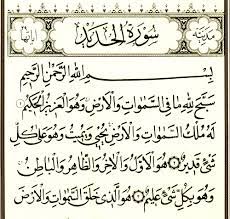 مدنية سُورَةُ الْحَدِيدِ
بِسْمِ اللَّهِ الرَّحْمٰنِ الرَّحِيمِ
سَبَّحَ لِلَّهِ مَا فِي السَّمٰوَاتِ وَالْأَرْضِ وَهُوَ الْعَزِيزُ الْحَكِيمُ
لَهُ مُلْكُ السَّمٰوَاتِ وَالْأَرْضِ يُحْيِي وَيُمِيتُ وَهُوَ عَلٰى كُلِّ
شَيْءٍ قَدِيرٌ هُوَ الْأَوَّلُ وَالْآخِرُ وَالظَّاهِرُ وَالْبَاطِنُ
وَهُوَ بِكُلِّ شَيْءٍ عَلِيمٌ هُوَ الَّذِي خَلَقَ السَّمٰوَاتِ وَالْأَرْضَ